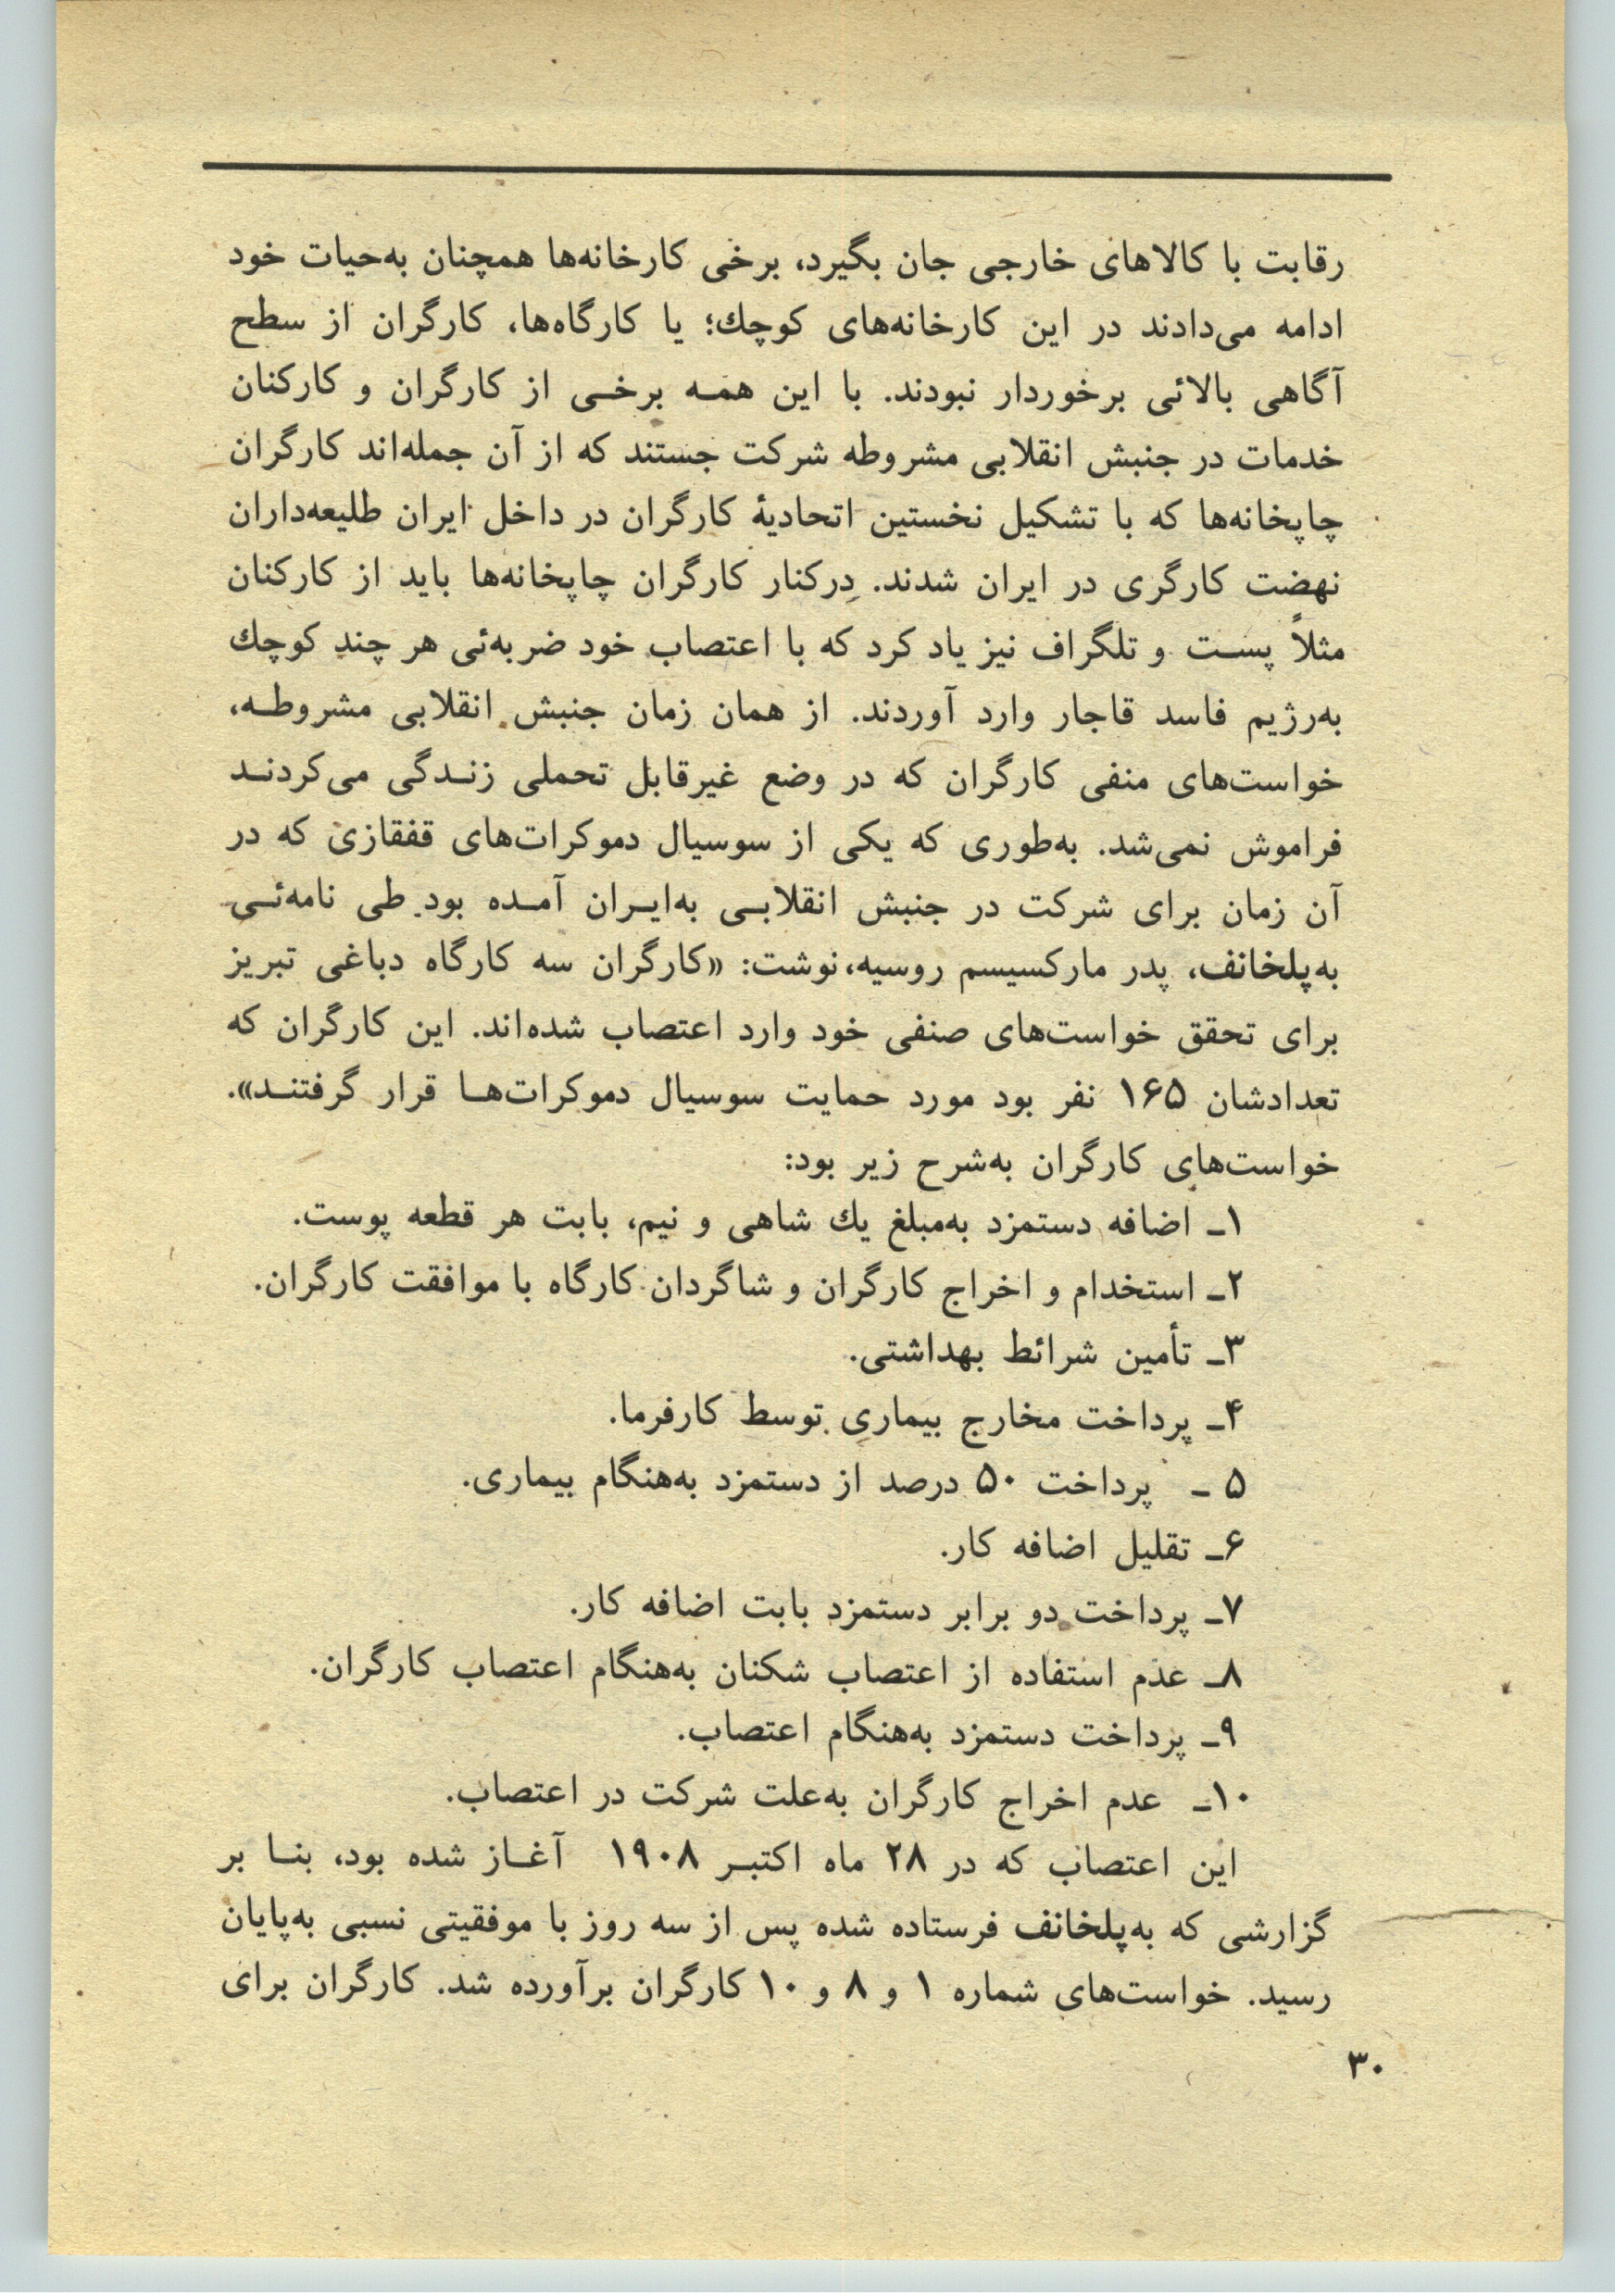 رقابت با کالاهای خارجی جان بگیرد، برخی کارخانه‌ها همچنان به‌حیات خود
ادامه می‌دادند در این کارخانه‌های کوچك؛ یا کارگاه‌ها، کارگران از سطح
آگاهی بالائی برخوردار نبودند. با این همه برخی از کارگران و کارکنان
خدمات در جنبش انقلابی مشروطه شرکت جستند که از آن جمله‌اند کارگران
چاپخانه‌ها که با تشکیل نخستین اتحادیهٔ کارگران در داخل ایران طلیعه‌داران
نهضت کارگری در ایران شدند. درکنار کارگران چاپخانه‌ها باید از کارکنان
مثلاً پست و تلگراف نیز یاد کرد که با اعتصاب خود ضربه‌ئی هر چند کوچك
به‌رژیم فاسد قاجار وارد آوردند. از همان زمان جنبش انقلابی مشروطه،
خواست‌های منفی کارگران که در وضع غیرقابل تحملی زندگی می‌کردند
فراموش نمی‌شد. به‌طوری که یکی از سوسیال دموکرات‌های قفقازی که در
آن زمان برای شرکت در جنبش انقلابی به‌ایران آمده بود طی نامه‌ئی
به‌پلخانف، پدر مارکسیسم روسیه، نوشت: «کارگران سه کارگاه دباغی تبریز
برای تحقق خواست‌های صنفی خود وارد اعتصاب شده‌اند. این کارگران که
تعدادشان ۱۶۵ نفر بود مورد حمایت سوسیال دموکرات‌ها قرار گرفتند».
خواست‌های کارگران به‌شرح زیر بود:
۱ـ اضافه دستمزد به‌مبلغ یك شاهی و نیم، بابت هر قطعه پوست.
۲ـ استخدام و اخراج کارگران و شاگردان کارگاه با موافقت کارگران.
۳ـ تأمین شرائط بهداشتی.
۴ـ پرداخت مخارج بیماری توسط کارفرما.
۵ ـ پرداخت ۵۰ درصد از دستمزد به‌هنگام بیماری.
۶ـ تقلیل اضافه کار.
۷ـ پرداخت دو برابر دستمزد بابت اضافه کار.
۸ـ عدم استفاده از اعتصاب شکنان به‌هنگام اعتصاب کارگران.
۹ـ پرداخت دستمزد به‌هنگام اعتصاب.
۱۰ـ عدم اخراج کارگران به‌علت شرکت در اعتصاب.
این اعتصاب که در ۲۸ ماه اکتبر ۱۹۰۸ آغاز شده بود، بنا بر
گزارشی که به‌پلخانف فرستاده شده پس از سه روز با موفقیتی نسبی به‌پایان
رسید. خواست‌های شماره ۱ و ۸ و ۱۰ کارگران برآورده شد. کارگران برای
۳۰